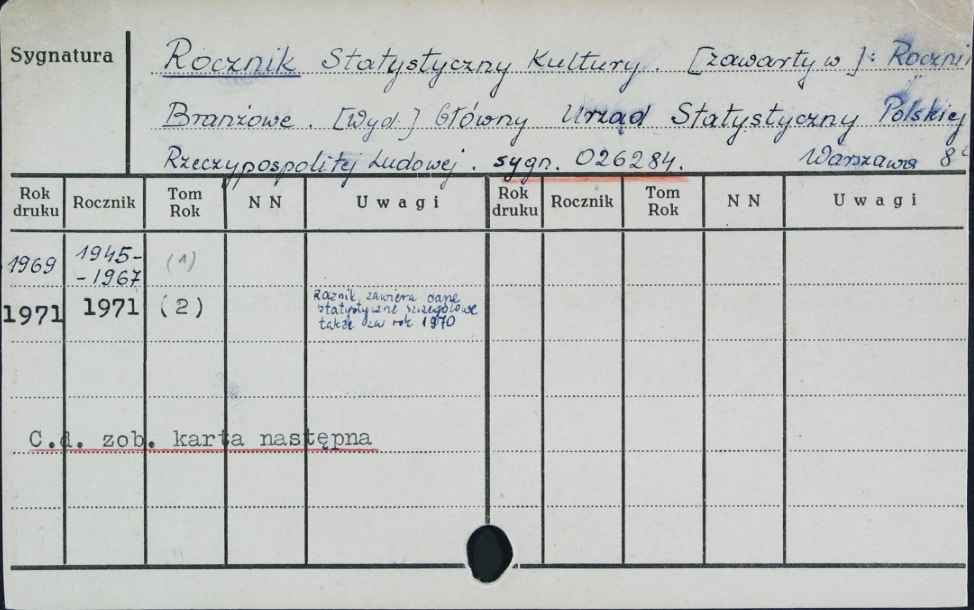 Sygnatura
Rocznik Statystyczny Kultury. [zawarty w]: Roczni
Branżowe. [Wyd.] Główny Urząd Statystyczny Polskiej
Rzeczypospolitej Ludowej. sygn. 026284. Warszawa 8°
Rok druku Rocznik Tom Rok N N Uwagi Rok druku Rocznik Tom Rok N N Uwagi
1969 1945- (1)
-1967
1971 1971 (2) Rocznik zawiera dane
statystyczne szczegółowe
także za rok 1970
C.d. zob. karta następna